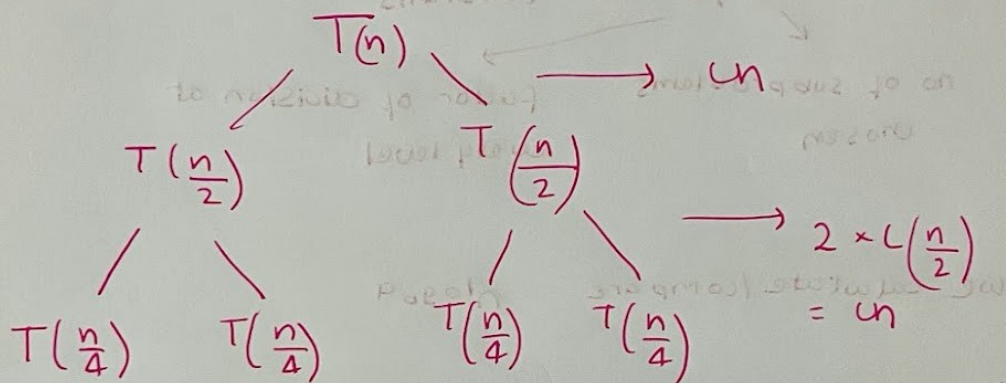 T(n)
→ cn
T(n/2) T(n/2)
→ 2 × c(n/2)
= cn
T(n/4) T(n/4) T(n/4) T(n/4)